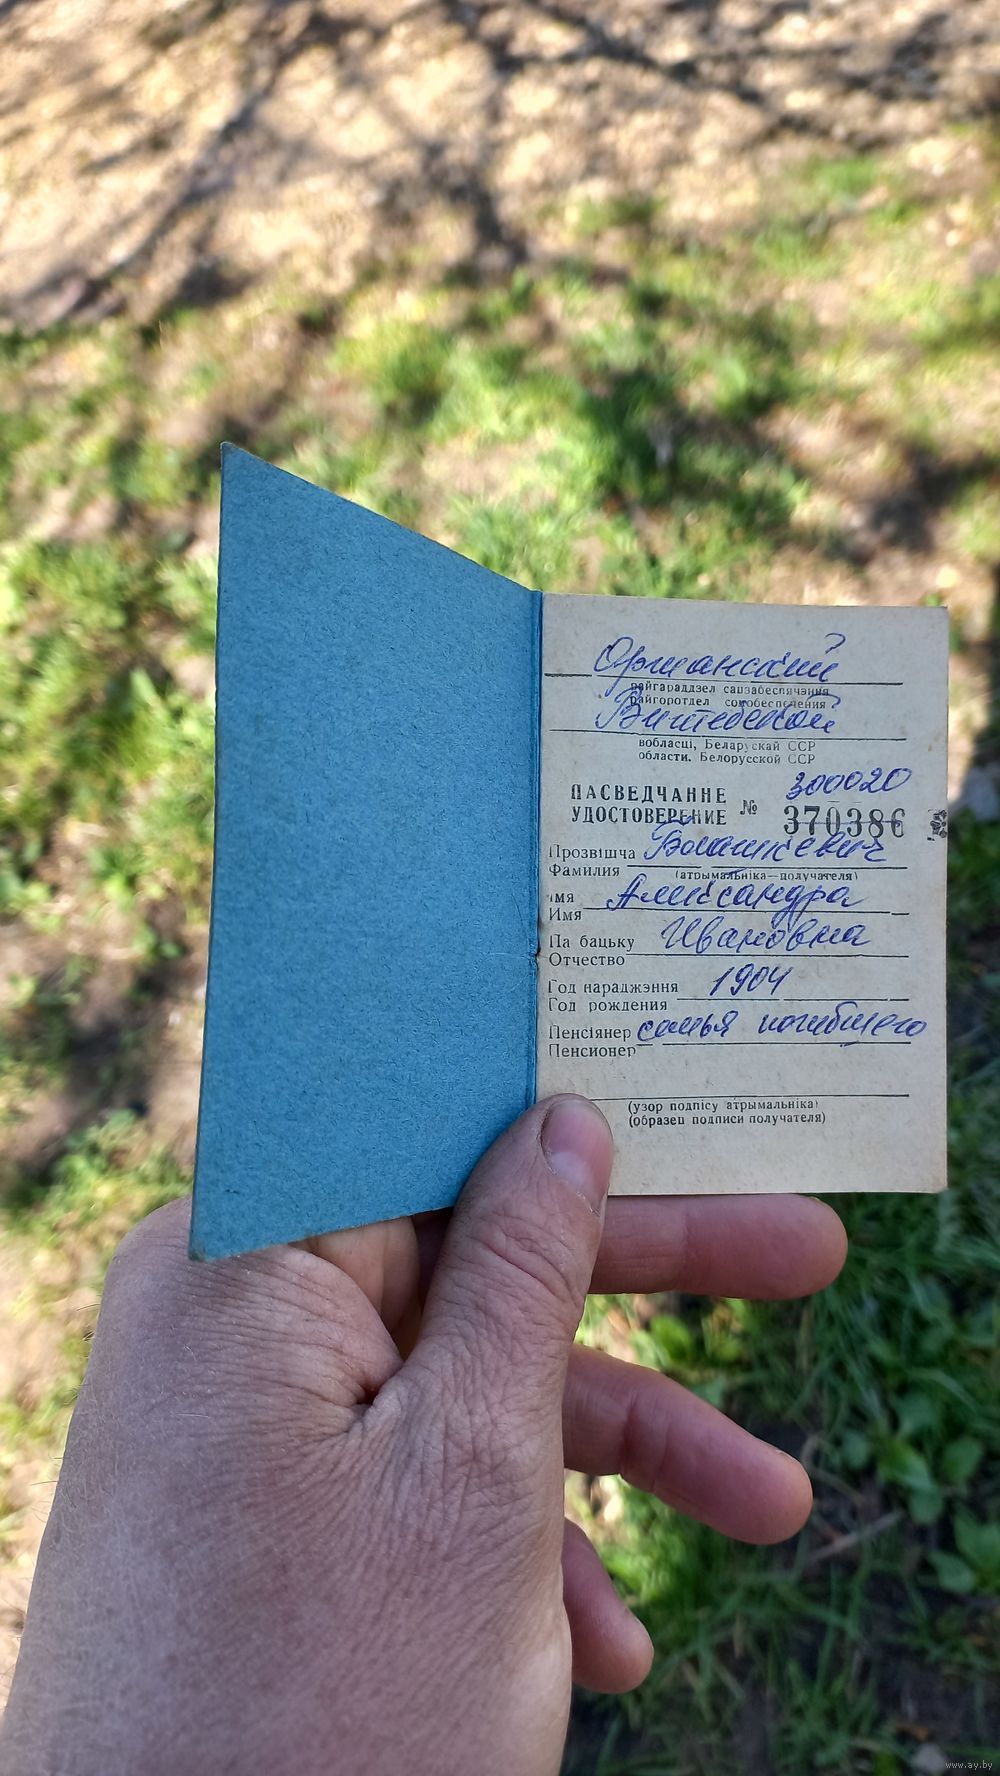 Оршанский
райгараддзел сацзабеспячэння
райгоротдел собеспечения
Витебской
вобласці, Беларускай ССР
области, Белорусской ССР
300020
ПАСВЕДЧАННЕ
УДОСТОВЕРЕНИЕ № 370386
Прозвішча
Фамилия
(атрымальніка—получателя)
імя Александра
Имя
Па бацьку Ивановна
Отчество
Год нараджэння 1904
Год рождения
Пенсіянер семья погибшего
Пенсионер
(узор подпісу атрымальніка)
(образец подписи получателя)
www.ay.by